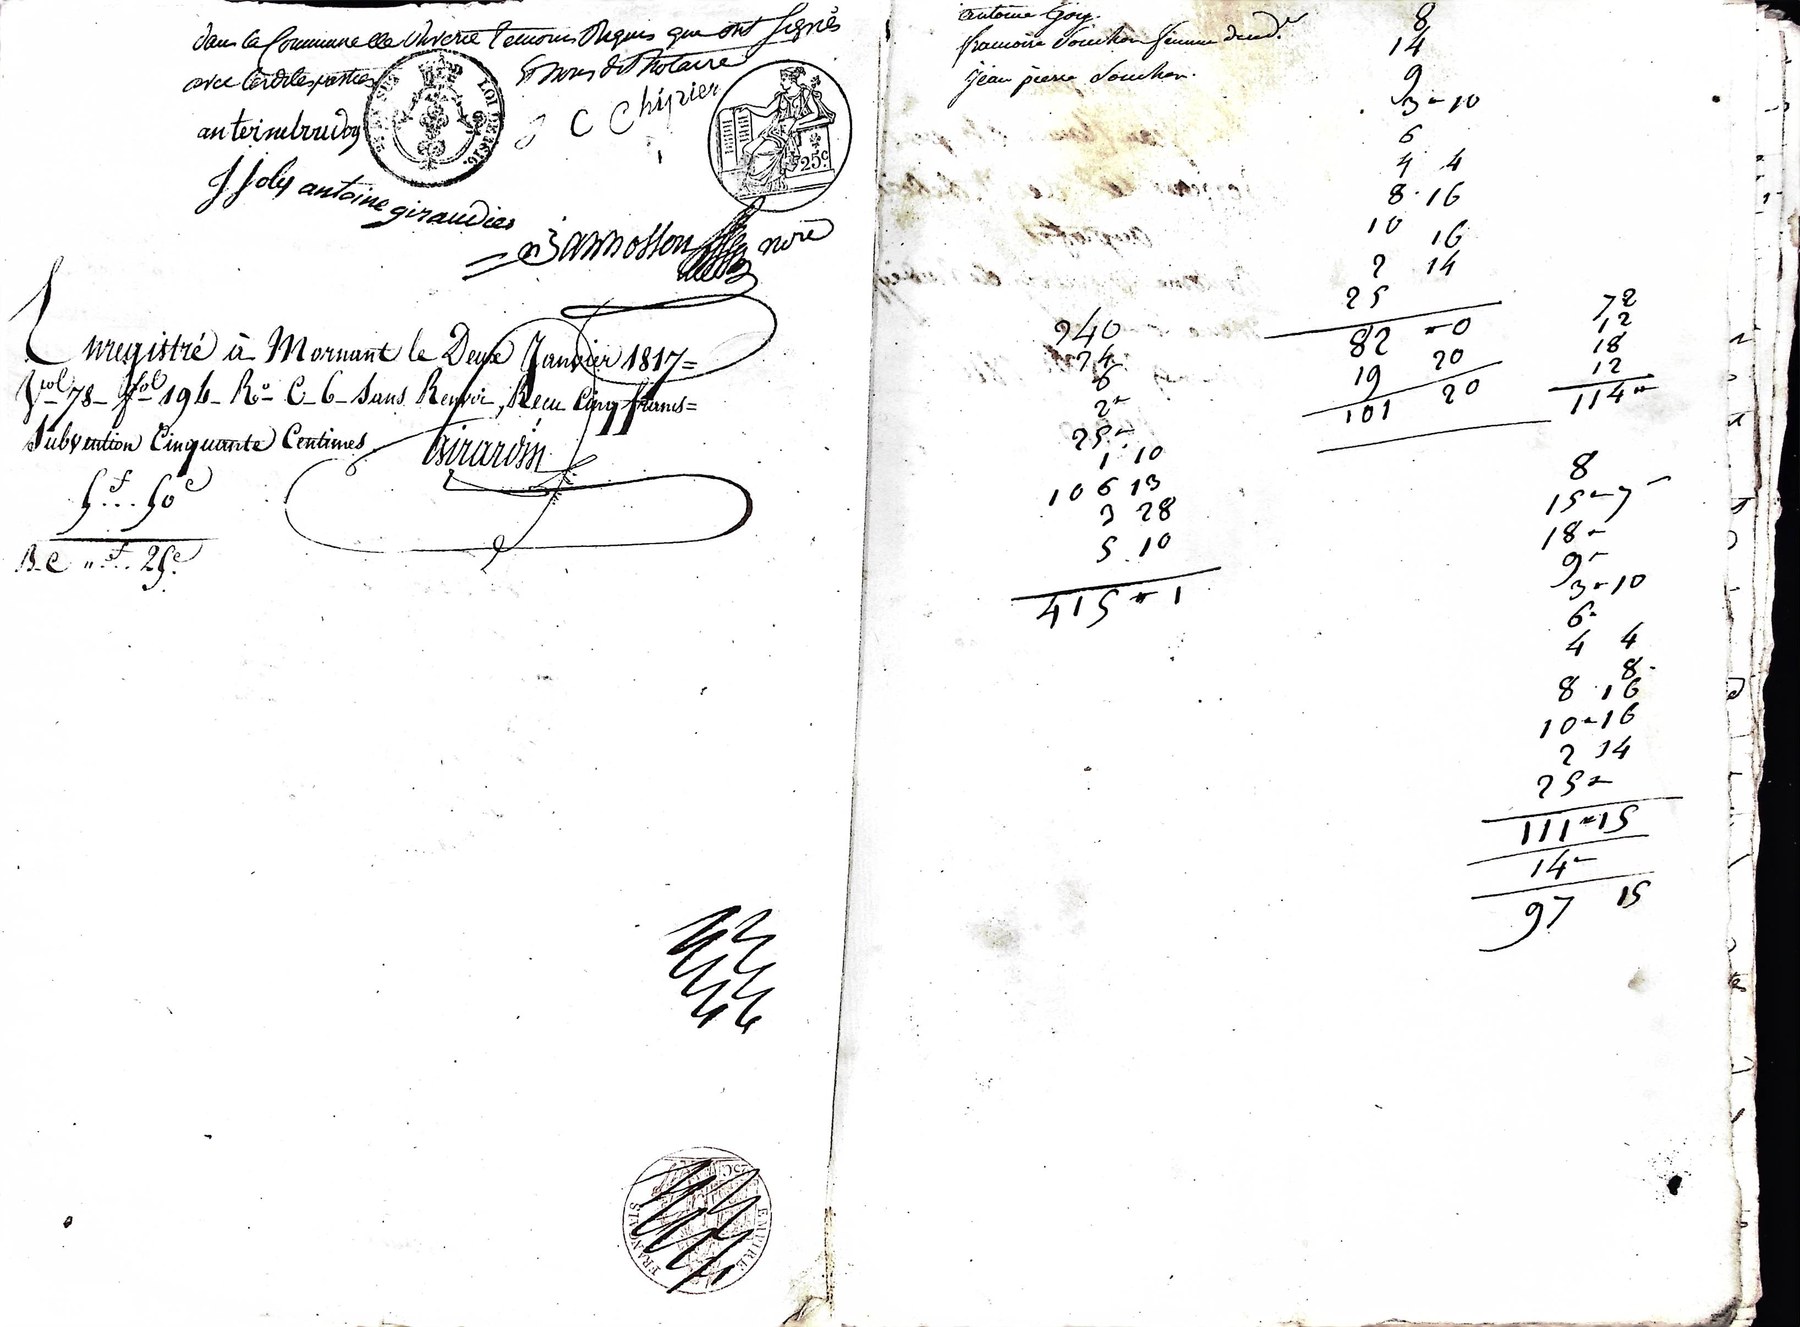 dans la Commune de Riverie temoins Requis qui ont Signés
avec lesdites parties Et nous dit Notaire
C Chipier
LOI DE 1816.
25c.
J Joly antoine giraudier
nore
Enregistré à Mornant le Deux Janvier 1817=
vol 78 fol 194 Ro C 6 Sans Renvoi, Recu Cinq francs=
Subvention Cinquante Centimes
Girardin
5f...50c
B.C "f... 25c.
EMPIRE FRANÇAIS
antoine Goy
jean pierre Souchon.
8
14
9
3 - 10
6
4 4
8 . 16
10 16
2 14
25
82 = 0
19 20
101 20
72
12
18
12
114 =
240
24
6
2 -
25 -
1 10
106 13
3 28
5 . 10
415 = 1
8
15 - 7
18 -
9 -
3 - 10
6 -
4 4
8 .
8 . 16
10 - 16
2 14
25 -
111 = 15
14 -
97 15